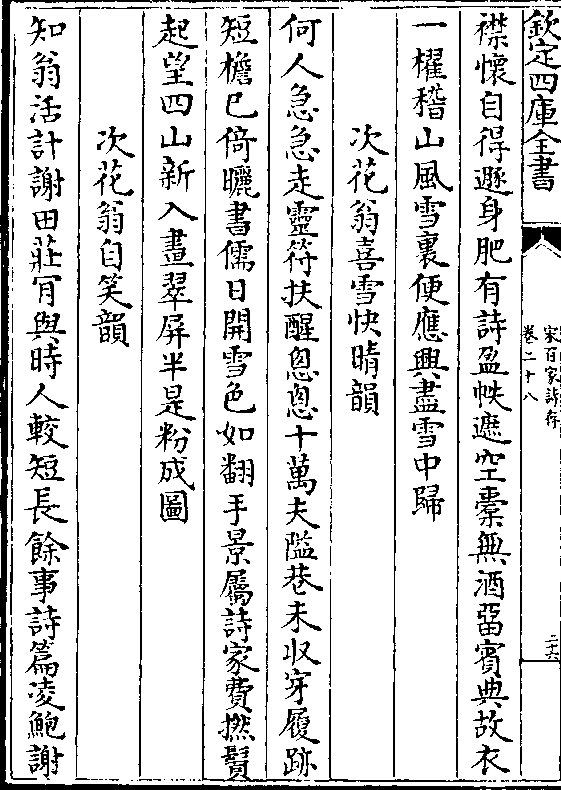 欽定四庫全書
宋百家詩存
卷二十八
二十六
襟懷自得遯身肥有詩盈帙遮空橐無酒留賓典故衣
一櫂稽山風雪裏便應興盡雪中歸
次花翁喜雪快晴韻
何人急急走靈符扶醒恖恖十萬夫隘巷未收穿履跡
短檐已倚曬書儒日開雪色如翻手景屬詩家費撚鬚
起望四山新入畫翠屏半是粉成圖
次花翁自笑韻
知翁活計謝田莊肎與時人較短長餘事詩篇凌鮑謝